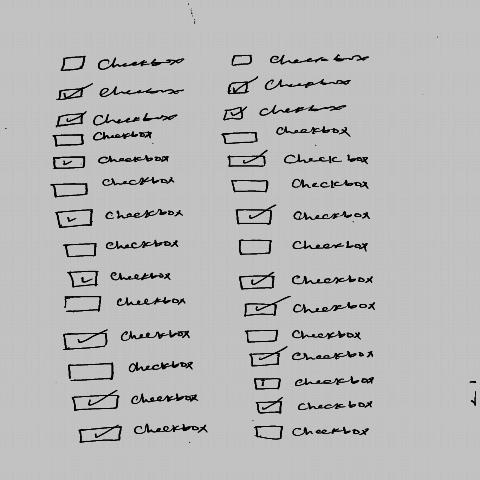 ☐ Checkbox ☐ Checkbox
☑ Checkbox ☑ Checkbox
☑ Checkbox ☑ Checkbox
☐ Checkbox ☐ Checkbox
☑ Checkbox ☑ Checkbox
☐ Checkbox ☐ Checkbox
☑ Checkbox ☑ Checkbox
☐ Checkbox ☐ Checkbox
☑ Checkbox ☑ Checkbox
☐ Checkbox ☑ Checkbox
☑ Checkbox ☐ Checkbox
☐ Checkbox ☑ Checkbox
☑ Checkbox ☐ Checkbox
☑ Checkbox ☑ Checkbox
☐ Checkbox